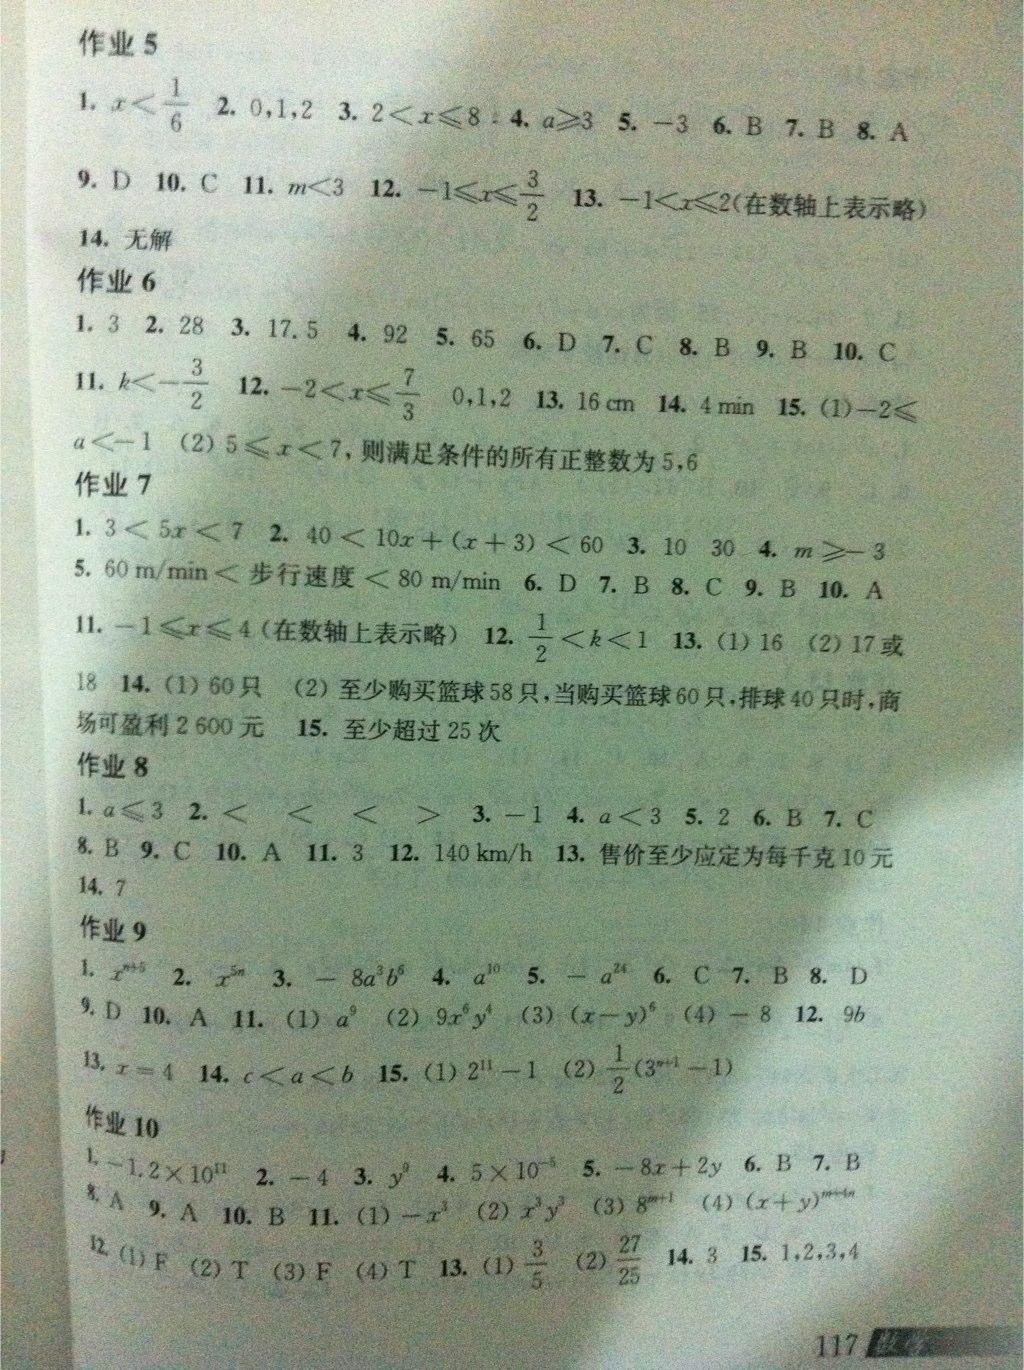 作业 5
1. x<1/6 2. 0,1,2 3. 2<x≤8 4. a≥3 5. -3 6. B 7. B 8. A
9. D 10. C 11. m<3 12. -1≤x≤3/2 13. -1<x≤2(在数轴上表示略)
14. 无解
作业 6
1. 3 2. 28 3. 17.5 4. 92 5. 65 6. D 7. C 8. B 9. B 10. C
11. k<-3/2 12. -2<x≤7/3 0,1,2 13. 16 cm 14. 4 min 15. (1)-2≤
a<-1 (2) 5≤x<7,则满足条件的所有正整数为 5,6
作业 7
1. 3<5x<7 2. 40<10x+(x+3)<60 3. 10 30 4. m≥-3
5. 60 m/min<步行速度<80 m/min 6. D 7. B 8. C 9. B 10. A
11. -1≤x≤4(在数轴上表示略) 12. 1/2<k<1 13. (1) 16 (2) 17 或
18 14. (1) 60 只 (2) 至少购买篮球 58 只,当购买篮球 60 只,排球 40 只时,商
场可盈利 2 600 元 15. 至少超过 25 次
作业 8
1. a≤3 2. < < < > 3. -1 4. a<3 5. 2 6. B 7. C
8. B 9. C 10. A 11. 3 12. 140 km/h 13. 售价至少应定为每千克 10 元
14. 7
作业 9
1. x^{n+5} 2. x^{5n} 3. -8a³b⁶ 4. a¹⁰ 5. -a²⁴ 6. C 7. B 8. D
9. D 10. A 11. (1) a⁹ (2) 9x⁶y⁴ (3) (x-y)⁶ (4) -8 12. 9b
13. x=4 14. c<a<b 15. (1) 2¹¹-1 (2) 1/2(3^{n+1}-1)
作业 10
1. -1.2×10¹¹ 2. -4 3. y⁹ 4. 5×10⁻⁵ 5. -8x+2y 6. B 7. B
8. A 9. A 10. B 11. (1) -x³ (2) x³y³ (3) 8^{m+1} (4) (x+y)^{m+4n}
12. (1) F (2) T (3) F (4) T 13. (1) 3/5 (2) 27/25 14. 3 15. 1,2,3,4
117